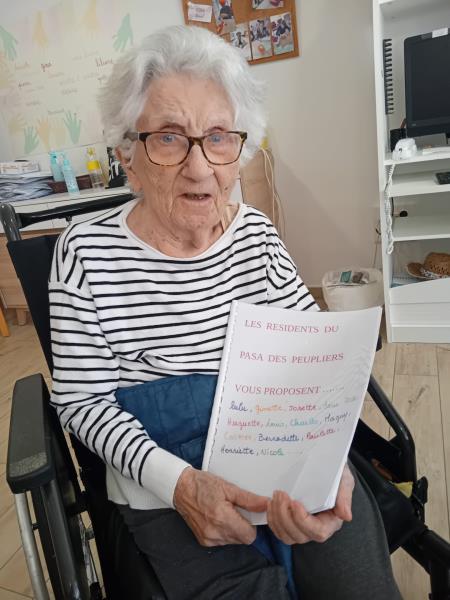 LES RESIDENTS DU
PASA DES PEUPLIERS
VOUS PROPOSENT .......
Lulu, Ginette, Josette,
Huguette, Louis, Charles, Maguy,
Carmen, Bernadette, Paulette,
Henriette, Nicole ....